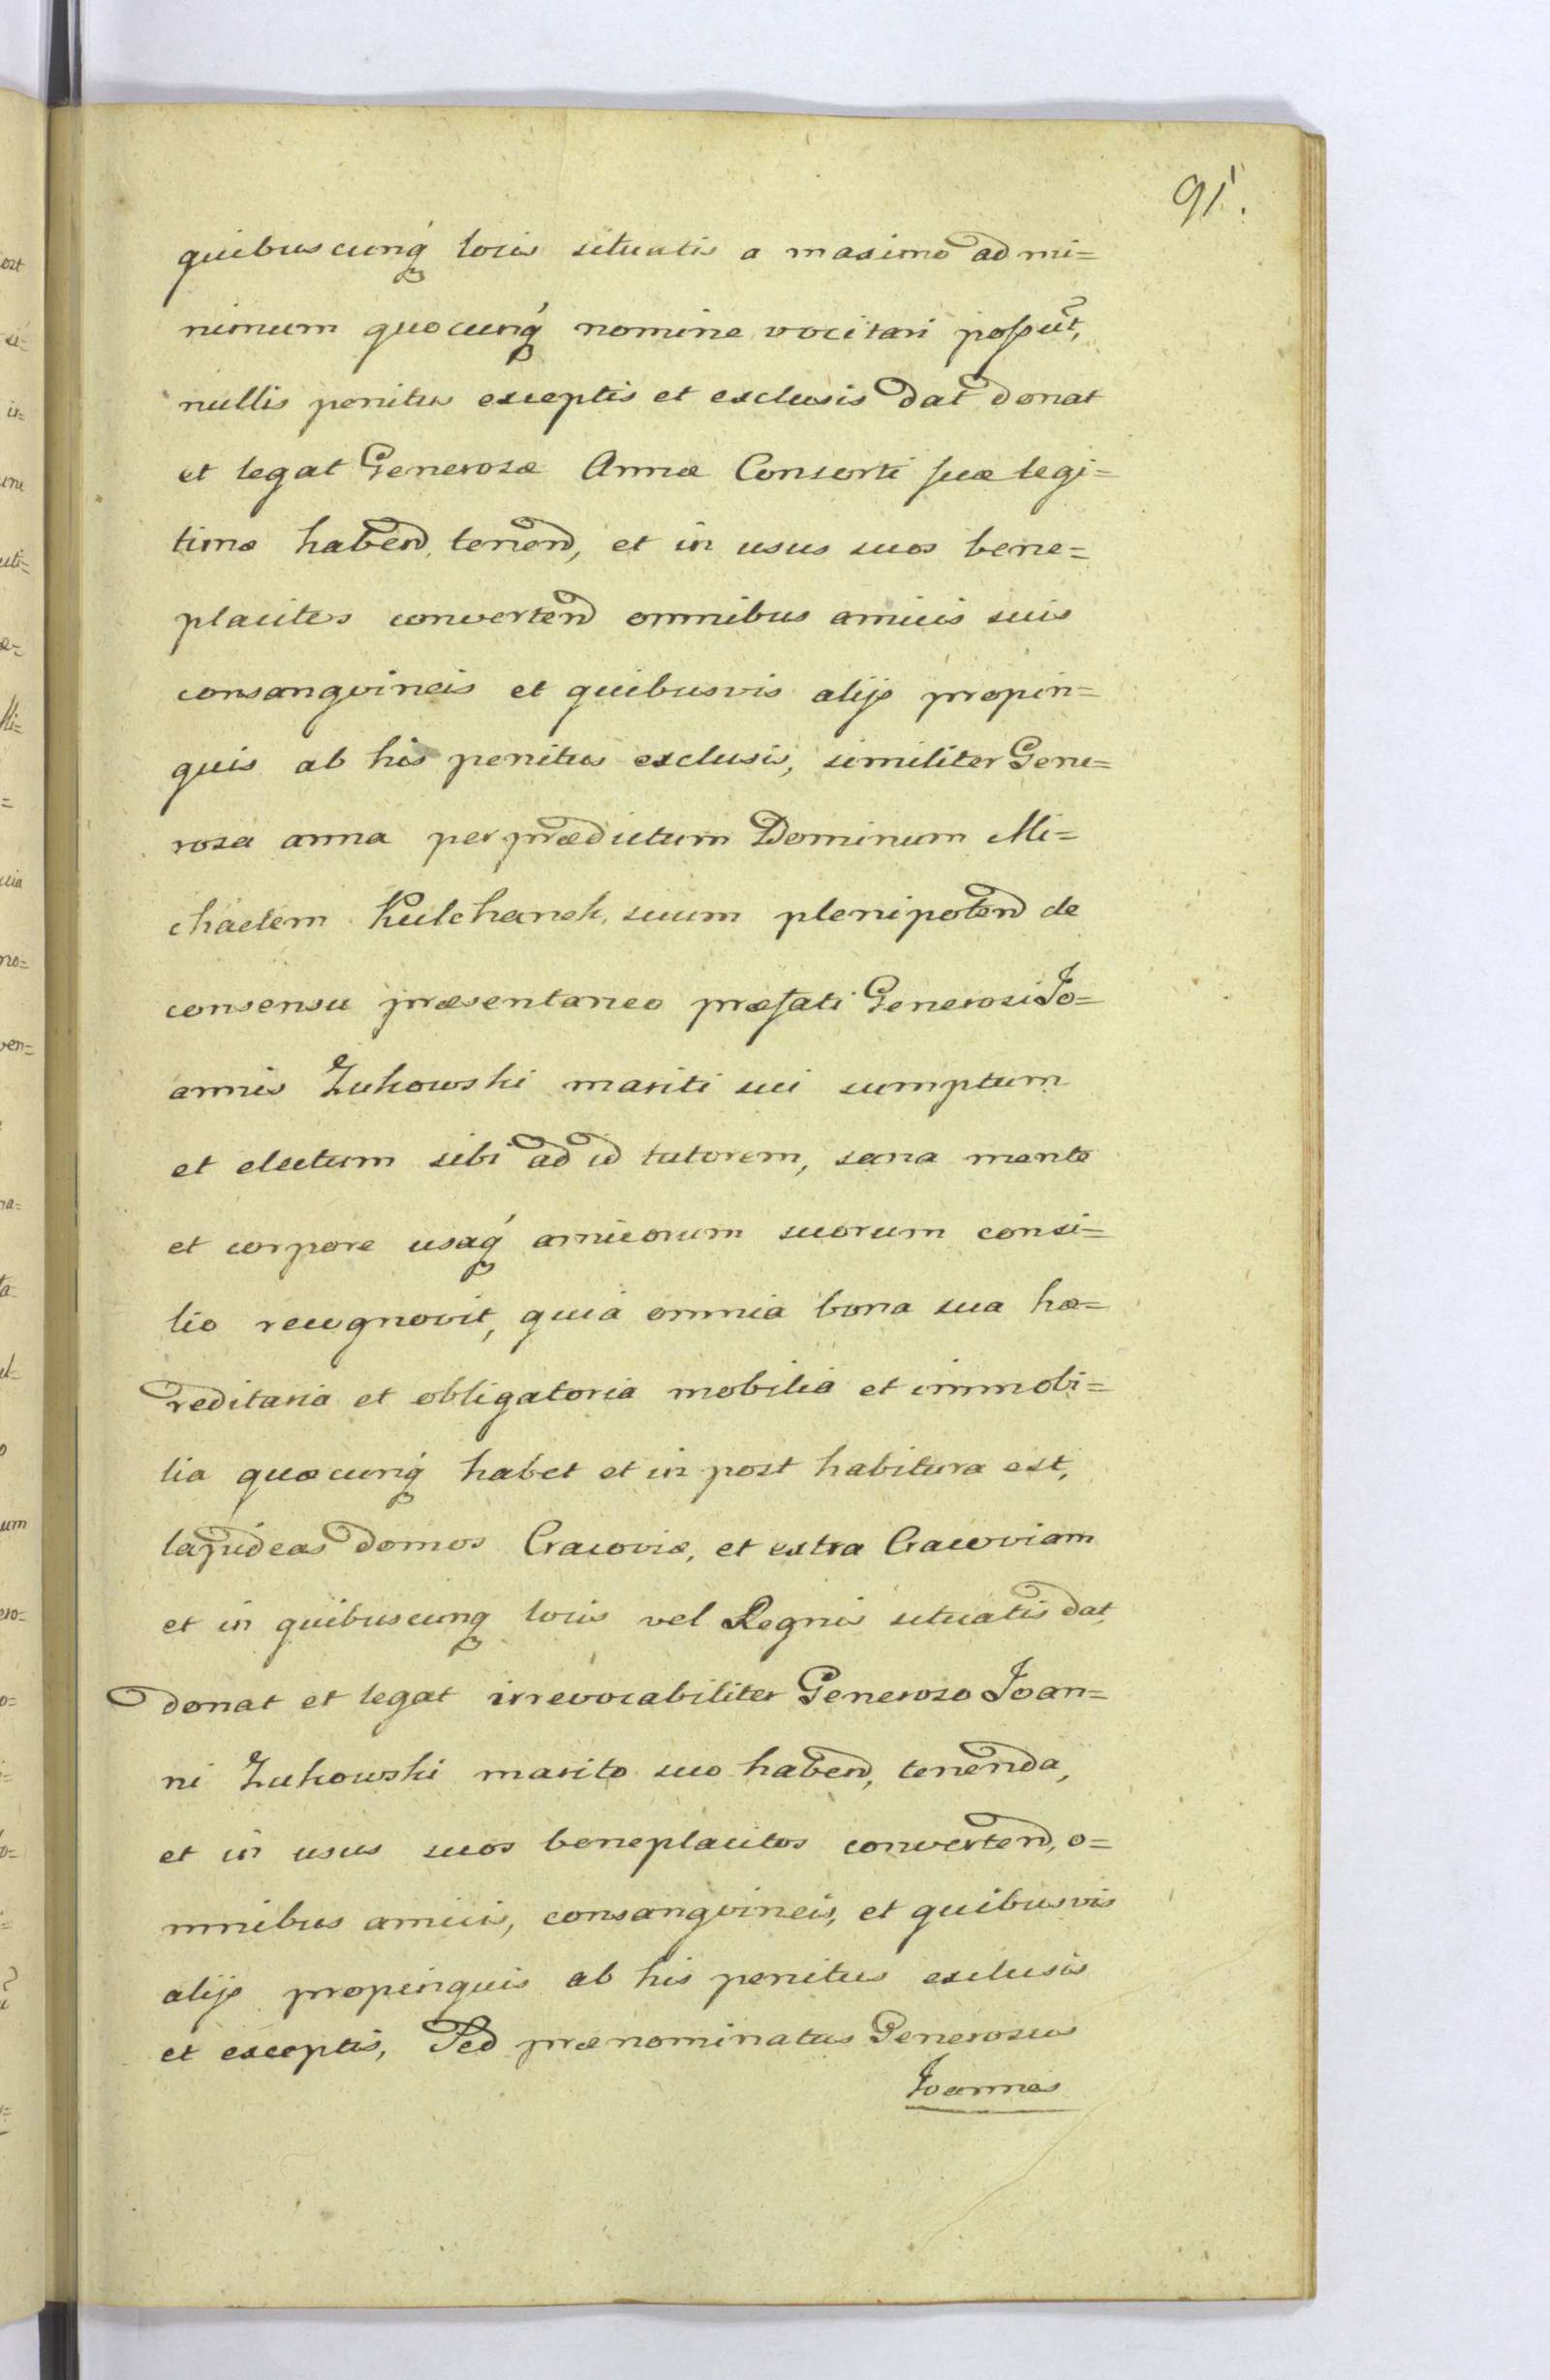 91.
quibuscunq́ locis situatis a maximo ad mi=
nimum quocunq́ nomine vocitari possūt,
nullis penitus exceptis et exclusis dat donat
et legat Generosæ Annæ Consorti suæ legi=
timæ habend, tenend, et in usus suos bene=
placitos convertend omnibus amicis suis
consangvineis et quibusvis alijs propin=
quis ab his penitus exclusis, similiter Gene=
rosa anna per prædictum Dominum Mi=
chaelem Kulchanek, suum plenipotend de
consensu præsentaneo præfati Generosi Jo=
annis Zukowski mariti sui sumptum
et electum sibi ad id tutorem, sana mente
et corpore usaq́ amicorum suorum consi=
lio recognovit, quia omnia bona sua hæ=
reditaria et obligatoria mobilia et immobi=
lia quæcunq́ habet et in post habitura est,
lapideas domos Cracoviæ, et extra Cracoviam
et in quibuscunq locis vel Regnis situatis dat
donat et legat irrevocabiliter Generoso Joan=
ni Zukowski marito suo habend, tenenda,
et in usus suos beneplacitos convertend, o=
mnibus amicis, consangvineis, et quibusvis
alijs propinquis ab his penitus exclusis
et exceptis, Sed prænominatus Generosus
Joannes